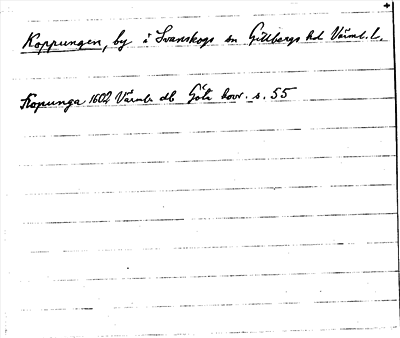 Koppungen, by i Svanskogs sn Gillbergs hd Värml. l.
Kopunga 1602 Värml. db Göta hovr. s. 55